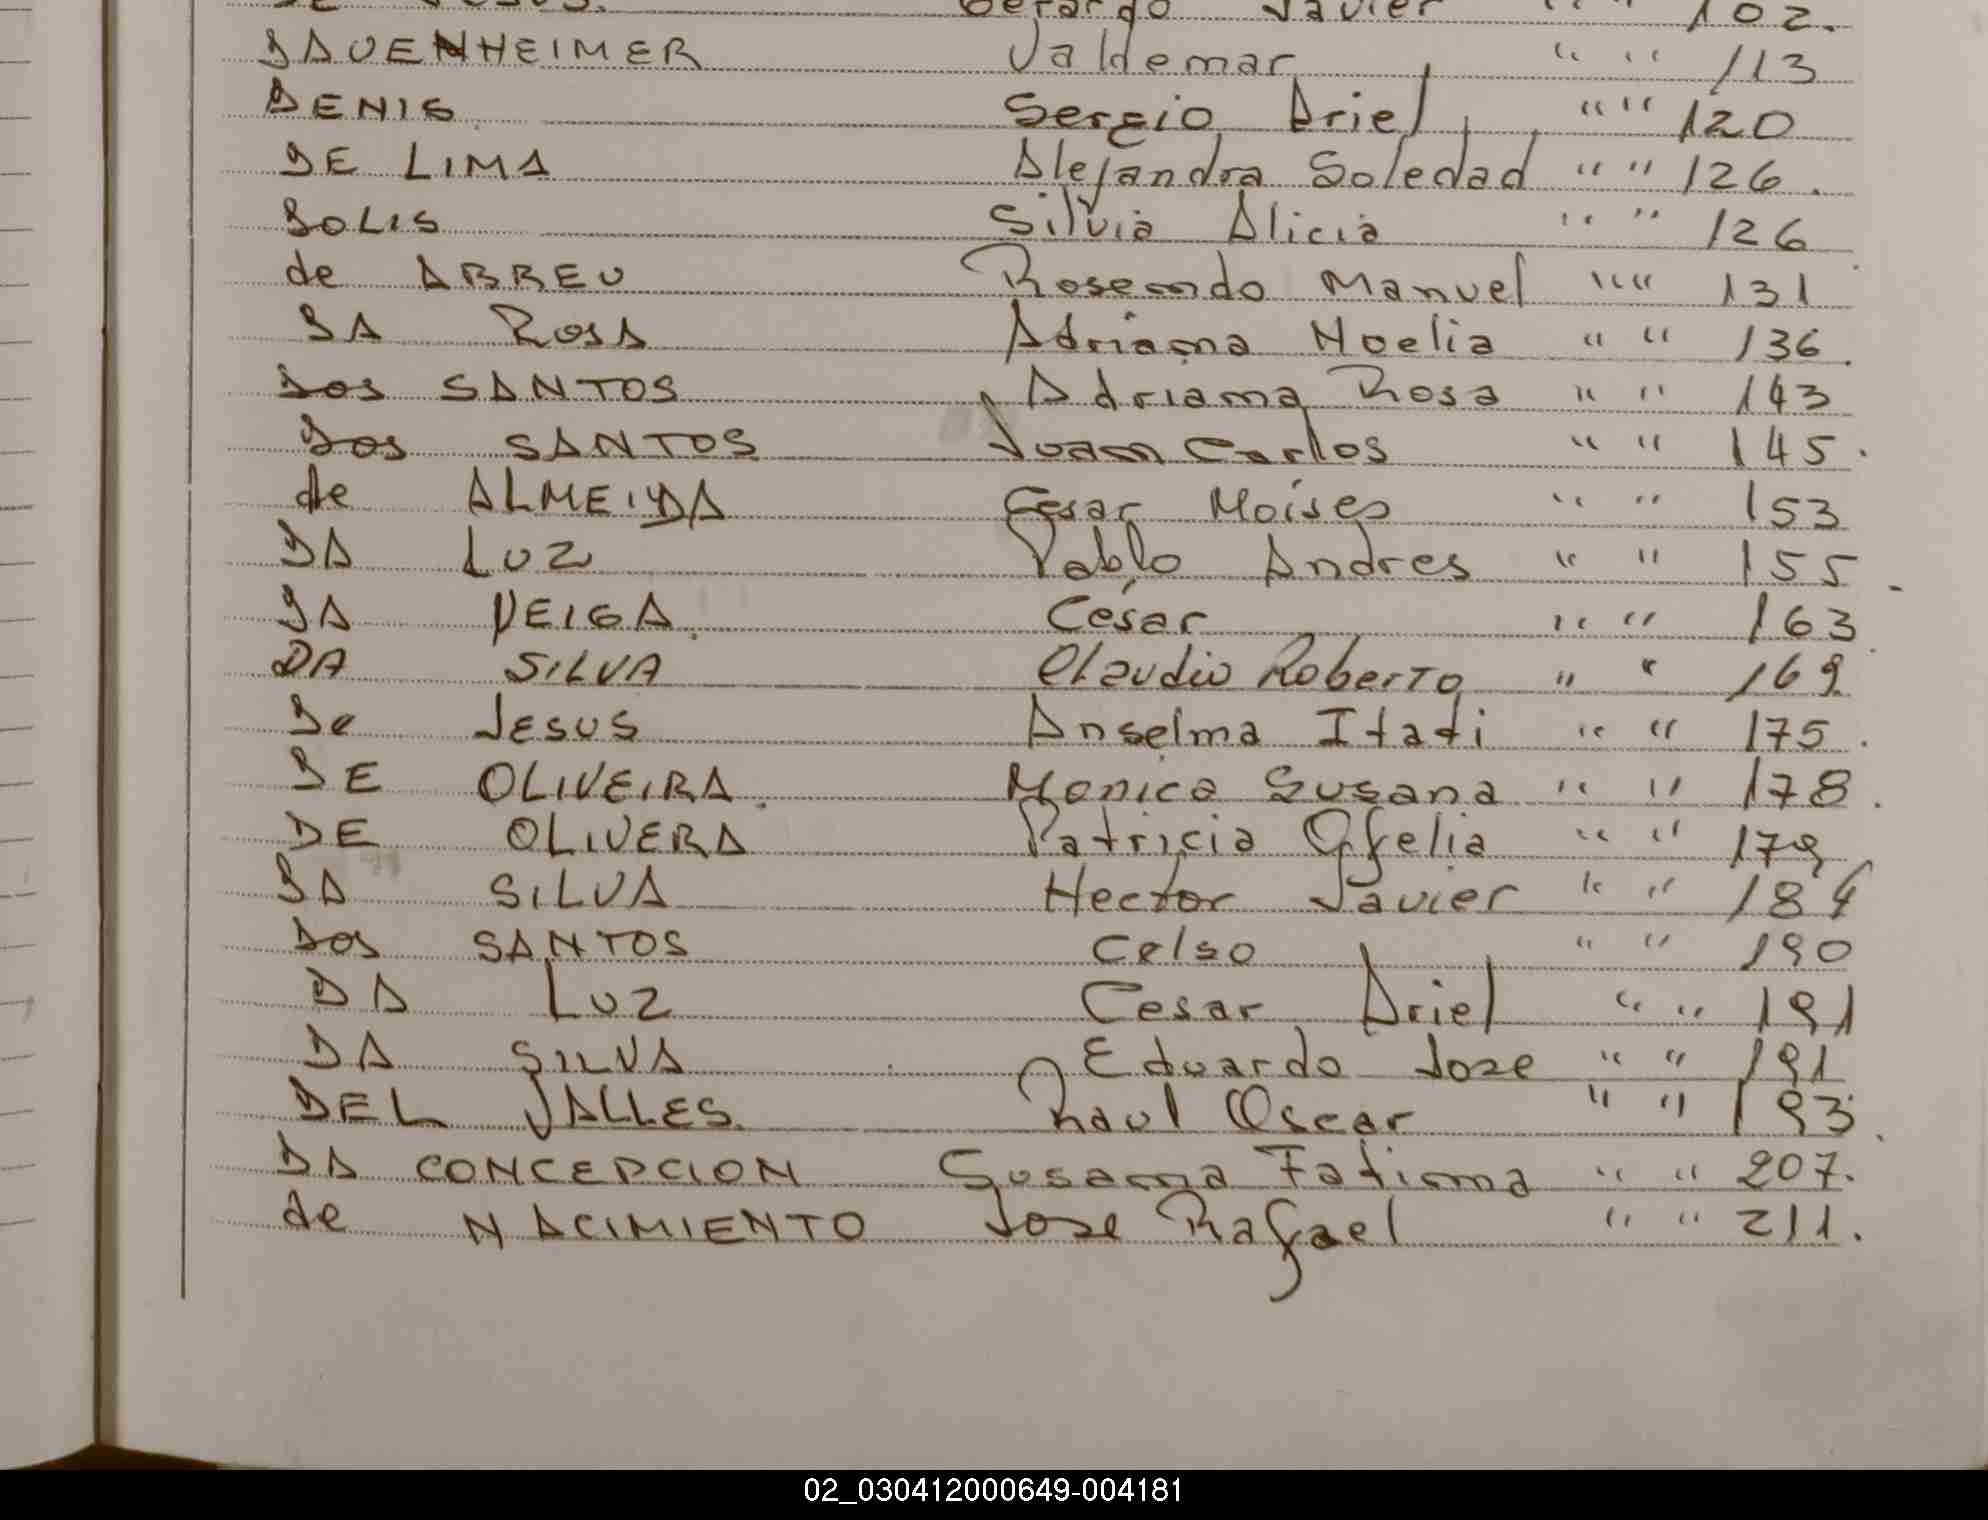 DE JESUS. Gerardo Javier " " 102.
DAUENHEIMER Valdemar " " 113
DENIS Sergio Ariel " " 120
DE LIMA Alejandra Soledad " " 126.
SOLIS Silvia Alicia " " 126
de ABREU Rosendo Manuel " " 131
DA ROSA Adriana Noelia " " 136.
Dos SANTOS Adriana Rosa " " 143
Dos SANTOS Juan Carlos " " 145.
de ALMEIDA Cesar Moises " " 153
DA LUZ Pablo Andres " " 155.
DA VEIGA. César " " 163
DA SILVA Claudio Roberto " " 169
De Jesus Anselma Itati " " 175.
DE OLIVEIRA. Monica Susana " " 178.
DE OLIVERA Patricia Ofelia " " 179
DA SILVA Hector Javier " " 184
Dos SANTOS Celso " " 190
DA LUZ Cesar Ariel " " 191
DA SILVA Eduardo Jose " " 191
DEL VALLES. Raul Oscar " " 193.
DA CONCEPCION Susana Fatima " " 207.
de NACIMIENTO Jose Rafael " " 211.
02_030412000649-004181